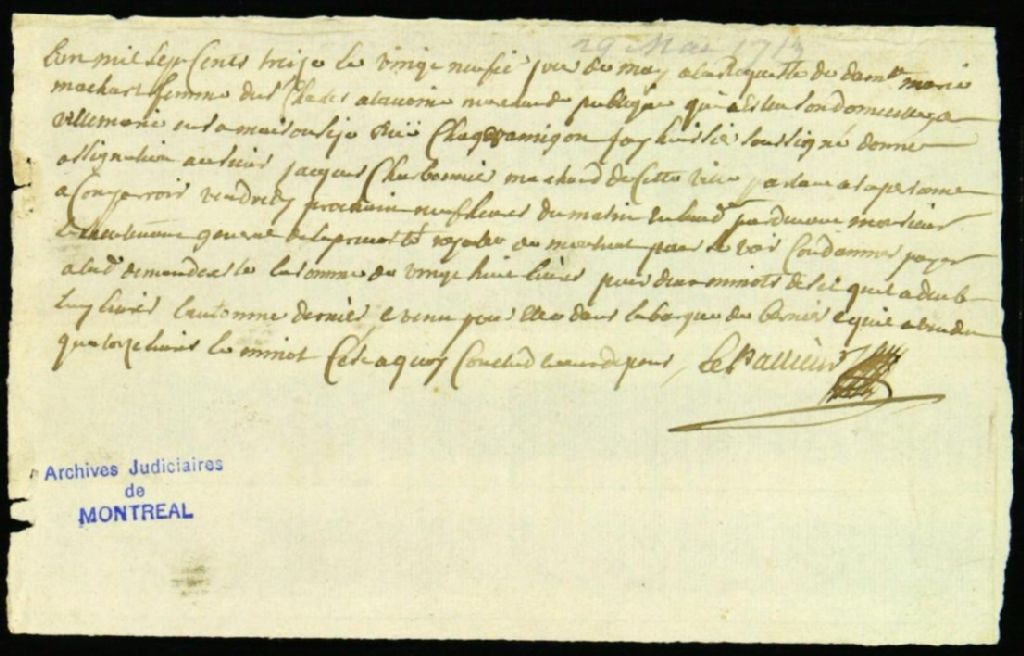 29 Mai 1713
Lan mil sept Cents treize le vingt neufie jour de may a la Requeste de dam<sup>lle</sup> marie
machart femme du Sr Charles alavoine marchande publique qui a esleu son domicille a
villemarie en sa maison size rüe Chagouamigon jay huissie soussigné donne
assignation au sieur jacques Charbonnie marchand de Cette ville parlant a sa personne
a Comparroir vendredy prochain neuf heures du matin pardevant monsieur
le lieutenant general de la prevosté royalle de montreal pour se voir Condamner payer
a lad demanderesse la somme de vingt huit livres pour deux minots de sel quil a
luy livrés lautomne dernier, venu pour elle dans la barque de et quil a vendu
quatorze livres le minot Cest a quoy Conclud et aux depens, Le Pallieur
Archives Judiciaires
de
MONTREAL